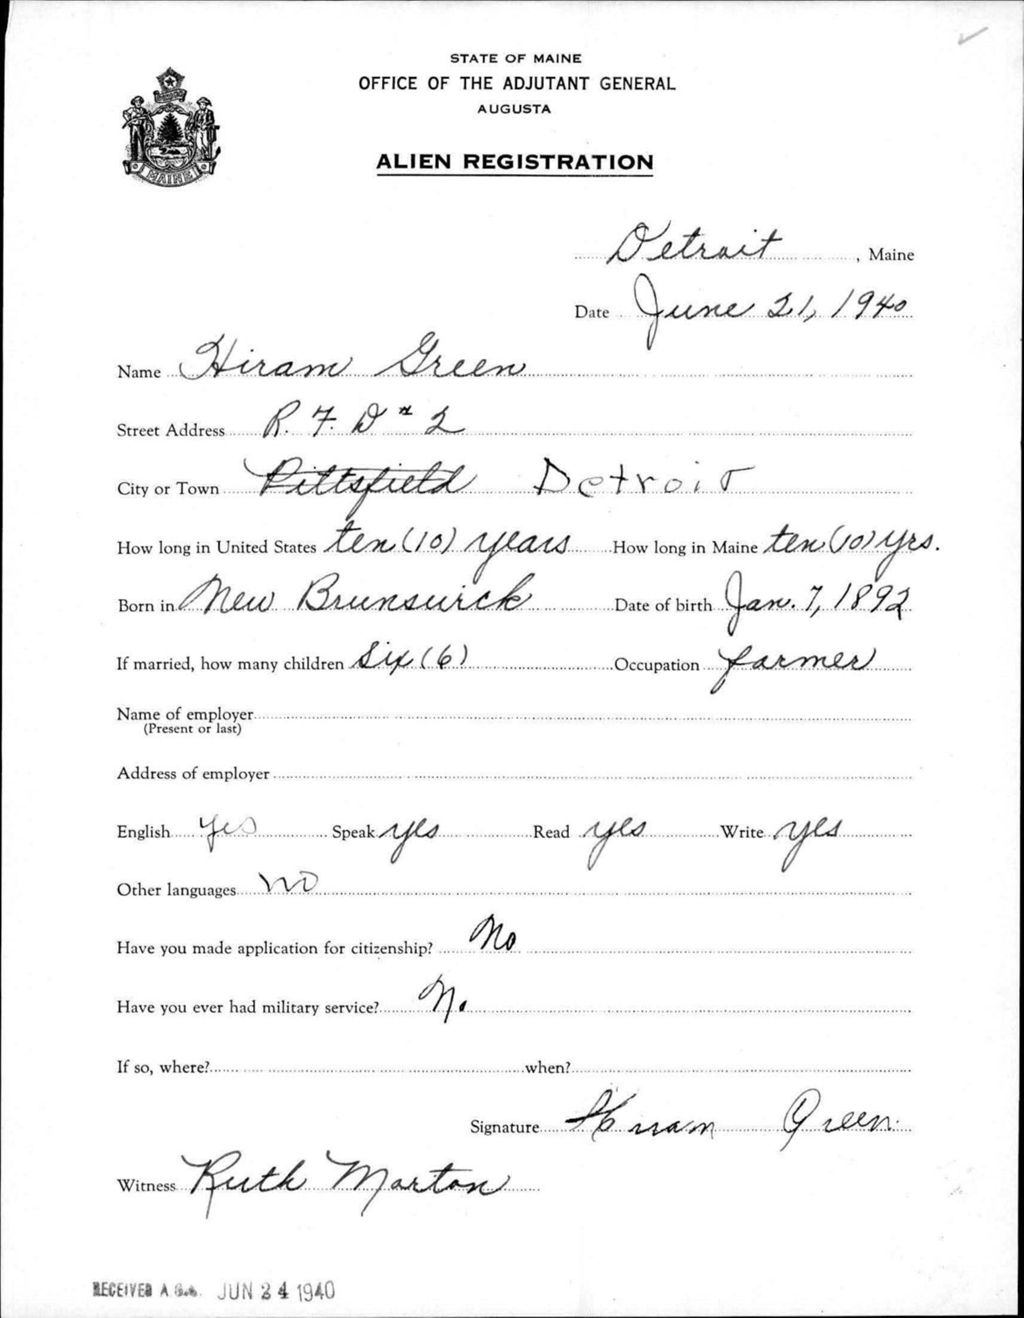 STATE OF MAINE
OFFICE OF THE ADJUTANT GENERAL
AUGUSTA
ALIEN REGISTRATION
MAINE
Detroit, Maine
Date June 21, 1940
Name Hiram Green
Street Address R. F. D # 2
City or Town Pittsfield Detroit
How long in United States ten (10) years How long in Maine ten (10) yrs.
Born in New Brunswick Date of birth Jan. 7, 1892
If married, how many children Six (6) Occupation farmer
Name of employer
(Present or last)
Address of employer
English yes Speak yes Read yes Write yes
Other languages no
Have you made application for citizenship? No
Have you ever had military service? No
If so, where? when?
Signature Hiram Green
Witness Ruth Morton
RECEIVED A JUN 24 1940